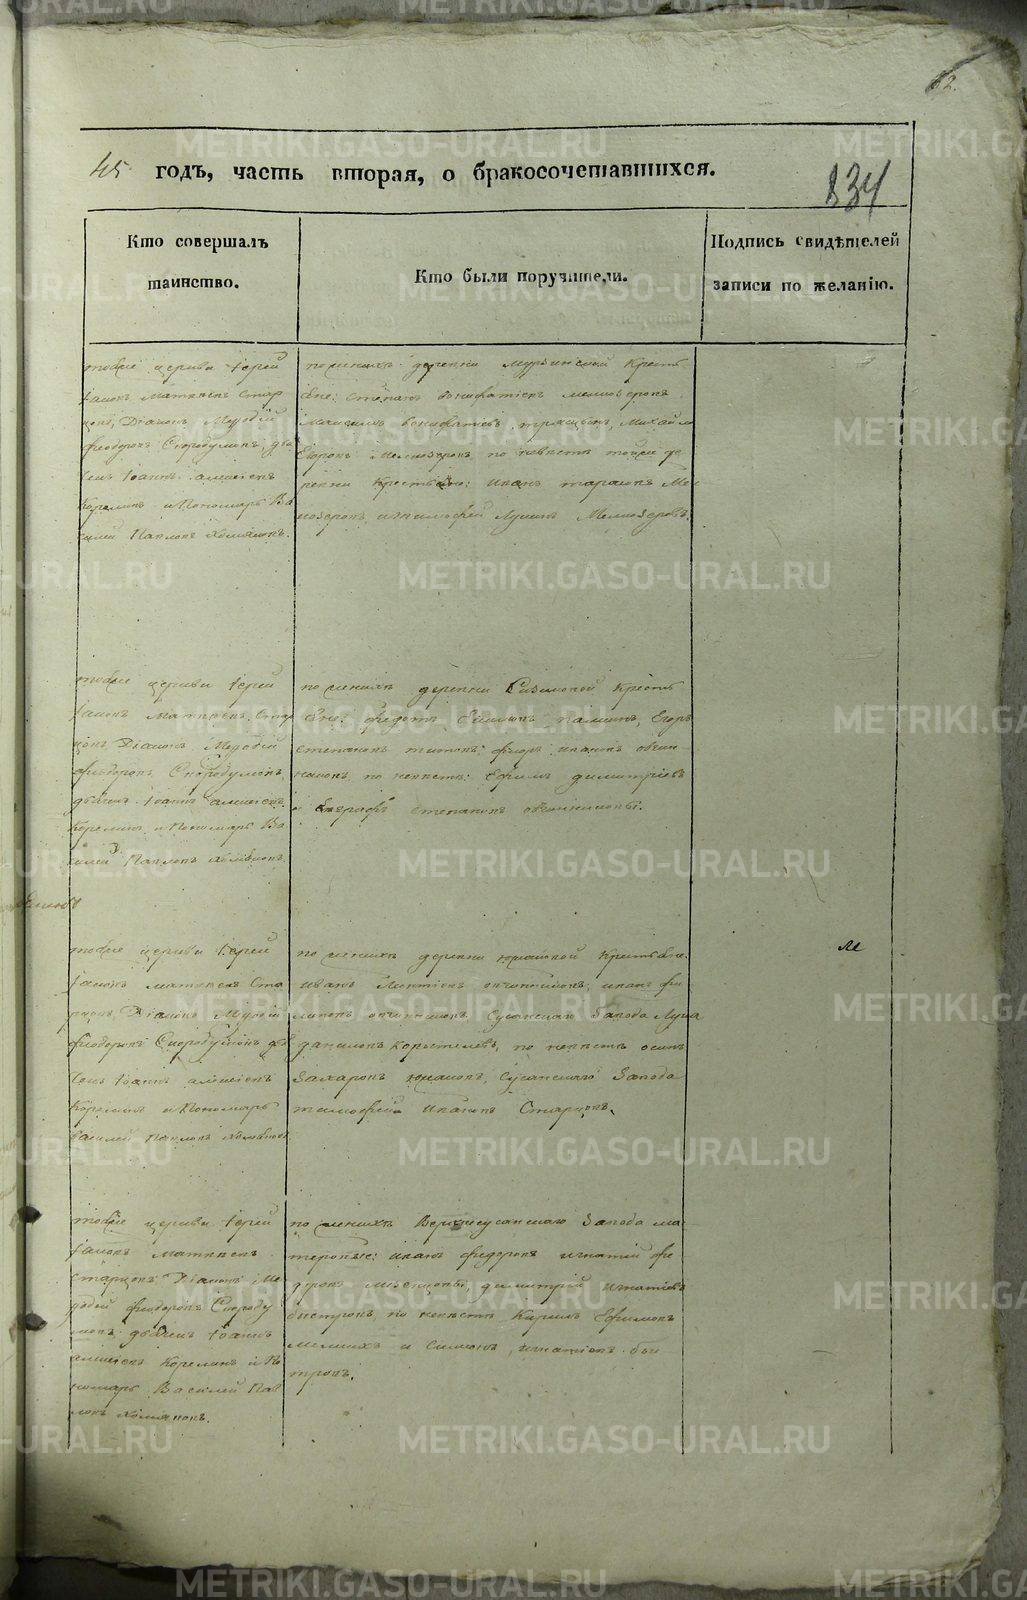 62.
45 годъ, часть вторая, о бракосочетавшихся.
834
Кто совершалъ
таинство.
Кто были поручители.
Подпись свидѣтелей
записи по желанію.
тойже церкви Іерей
Іаковъ Матвѣевъ Стар
цовъ, Діаконъ Меѳодій
Феодоровъ Скородумовъ, дья
чекъ Іоаннъ Алексѣевъ
Корелинъ и Пономарь Ва
силей Павловъ Хомяковъ.
по женихѣ деревни Мурзинской кресть
яне: Степанъ Вонифатіевъ Мелкозеровъ
Максимъ Вонифатіевъ Михайло
Мелкозеровъ по невѣстѣ тойже де
ревни крестьяне: Иванъ Тарасовъ Мел
козеровъ, и Тимофей Лукинъ Мелкозеровъ.
тойже церкви Іерей
Іаковъ Матвѣевъ Стар
цовъ, Діаконъ Меѳодій
Феодоровъ Скородумовъ,
дьячекъ Іоаннъ Алексѣевъ
Корелинъ и Пономарь Ва
силей Павловъ Хомяковъ
по женихѣ деревни Сизиковой кресть
яне: Федотъ Егоръ
Степановъ Титовъ, Иванов Овчин
никовъ, по невѣстѣ: Ефимъ Димитріевъ
и Евграфъ Степановъ Овчинниковы.
тойже церкви Іерей
Іаковъ Матвѣевъ Ста
рцовъ, Діаконъ Меѳодій
Феодоровъ Скородумовъ дья
чекъ Іоаннъ Алексѣевъ
Корелинъ и Пономарь
Василей Павловъ Хомяковъ
по женихѣ деревни Южаковой крестьяне
Иванъ Леонтіевъ Овчинниковъ, Иванъ Фи
липовъ Овчинниковъ Сусанскаго Завода Лука
Даниловъ Коростелевъ, по невѣстѣ Осипъ
Захаровъ Южаковъ, Сусанскаго Завода
Тимофей Ивановъ Старцовъ.
тойже церкви Іерей
Іаковъ Матвѣевъ
Старцовъ Діаконъ Ме
ѳодій Феодоровъ Скороду
мовъ дьячекъ Іоаннъ
Алексѣевъ Корелинъ и По
номарь Василей Пав
ловъ Хомяковъ.
по женихѣ Верхнесусанскаго Завода ма
стеровые: Иванъ Федоровъ Игнатій Фе
доровъ Димитрій Игнатіевъ
Быстровъ, по невѣстѣ Кирилъ Ефимовъ
Мелкихъ и Симеонъ Игнатіевъ Бы
стровъ.
METRIKI.GASO-URAL.RU